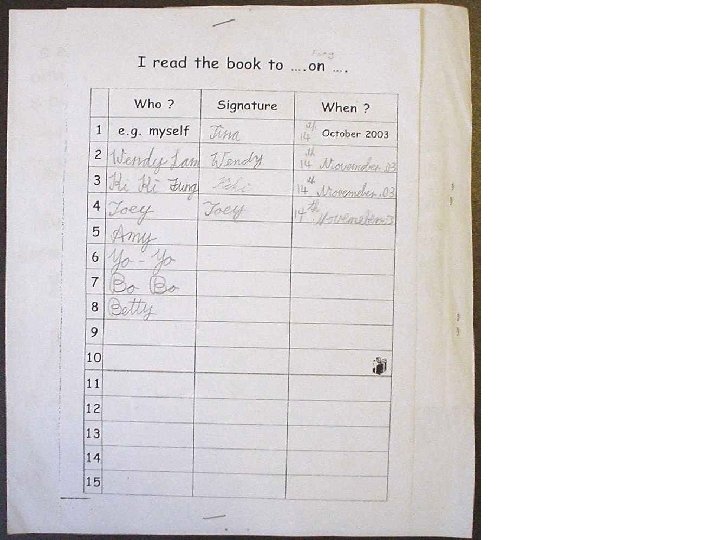 I read the book to ….on ….
Who ? Signature When ?
1 e.g. myself Tina 14 October 2003
2 Wendy Lam Wendy 14th November.03
3 Ki Ki Fung 14th November.03
4 Joey Joey 14th
5 Amy
6 Yo - Yo
7 Bo Bo
8 Betty
9
10
11
12
13
14
15